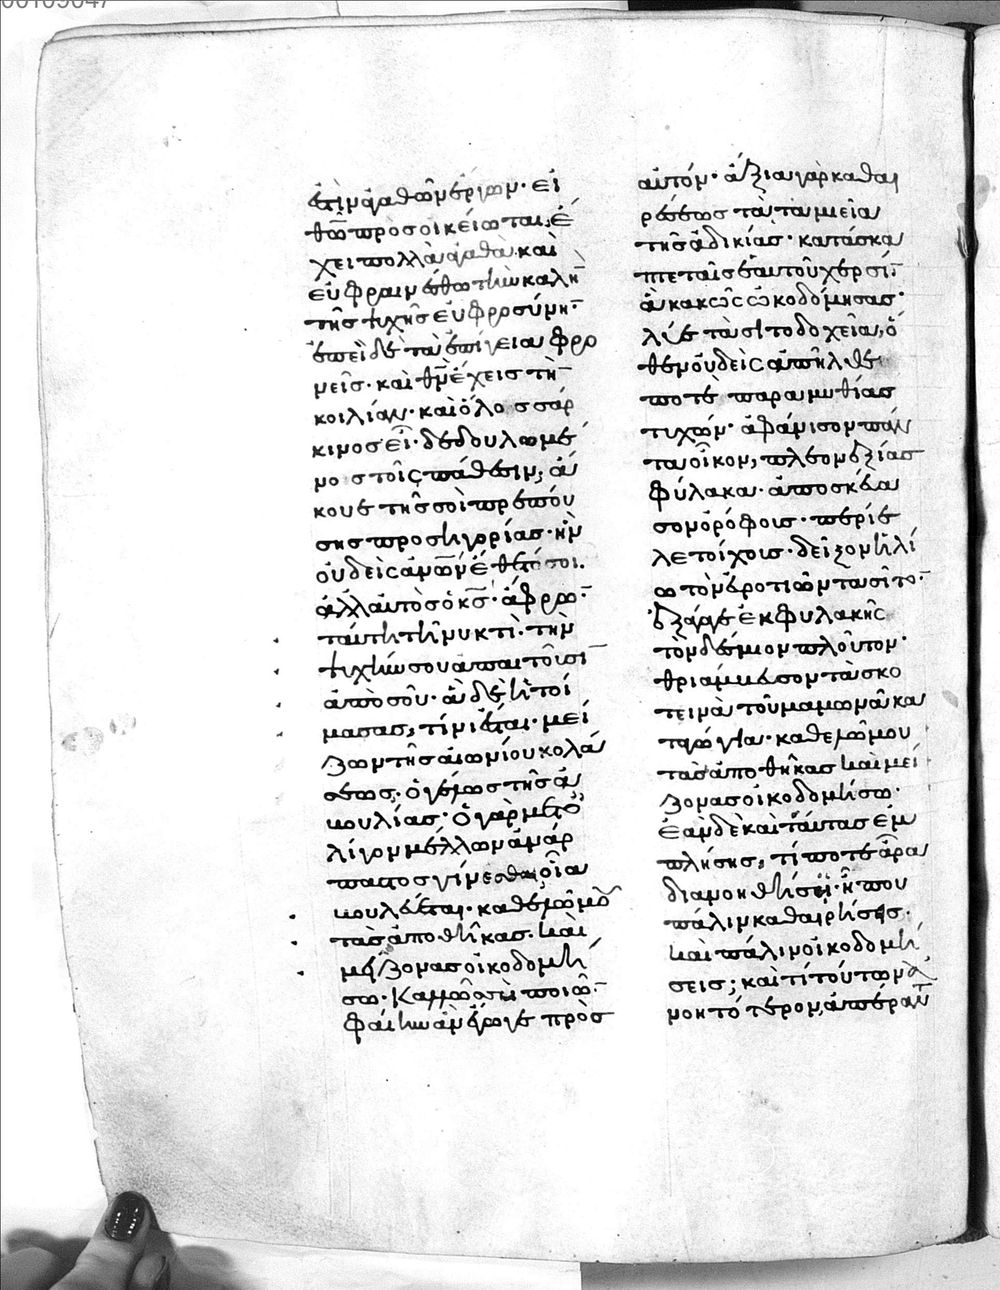 ἐτὶν ἀγαθῶν ἔργων· εἰ
θῶ προσοικείωται, ἔ
χει πολλὰ ἀγαθὰ καὶ
εὐφραινέσθω τὴν καλὴ
τῆς ψυχῆς εὐφροσύνη
ἐπεὶ δὲ τὰ ἐπίγεια φρο
νεῖς· καὶ θν ἔχεις τὴ
κοιλίαν· καὶ ὅλος σάρ
κινος εἶ· δεδουλωμέ
νος τοῖς πάθεσιν, ἄ
κουε τῆς σοὶ πρεπού
σης προσηγορίας· ἣν
οὐδεὶς ἀνων ἔθετό σοι.
ἀλλ' αὐτὸς ὁ κς· ἄφρω
ταύτη τῆ νυκτὶ· τὴν
ψυχήν σου ἀπαιτοῦσι
ἀπὸ σοῦ· ἃ δὲ ἡτοί
μασας, τίνι ἔσται· μεί
ζων τῆς αἰωνίου κολά
σεως· ὁ γέλως τῆς ἀ
βουλίας· ὁ γὰρ μετ' ὀ
λίγον μέλλων ἀνάρ
παστος γίνεσθαι, οἷα
βουλεύεται· καθελῶ μου
τὰς ἀποθήκας· καὶ
μείζονας οἰκοδομή
σω· καλῶς ποιῶ
φαίην ἂν ἔγωγε πρὸς
αὐτόν· ἄξια γὰρ καθαι
ρέσεως τὰ ταμιεῖα
τῆς ἀδικίας· κατάσκα
πτε ταῖς ἑαυτοῦ χερσί
ἃ κακῶς ὠκοδόμησας·
λύε τὰ σιτοδοχεῖα, ὅ
θεν οὐδεὶς ἀπῆλθε
ποτὲ παραμυθίας
τυχών· ἀφάνισον πάν
τα οἶκον, πλεονεξίας
φύλακα· ἀποσκέπα
σον ὀρόφους· περίε
λε τοίχους· δεῖξον ἡλί
ω τὸν εὐρωτιῶντα σῖτο
ἐξάγαγε ἐκ φυλακῆς
τὸν δέσμιον πλοῦτον·
θριάμβευσον τὰ σκο
τεινὰ τοῦ μαμωνᾶ κα
ταγώγια· καθελῶ μου
τὰς ἀποθήκας καὶ μεί
ζονας οἰκοδομήσω·
ἐὰν δὲ καὶ ταύτας ἐμ
πλήσης, τί ποτε ἄρα
διανοηθήσει· ἤπου
πάλιν καθαιρήσεις·
καὶ πάλιν οἰκοδομή
σεις; καὶ τί τούτων ἀ
νοητότερον, ἀπέραντ